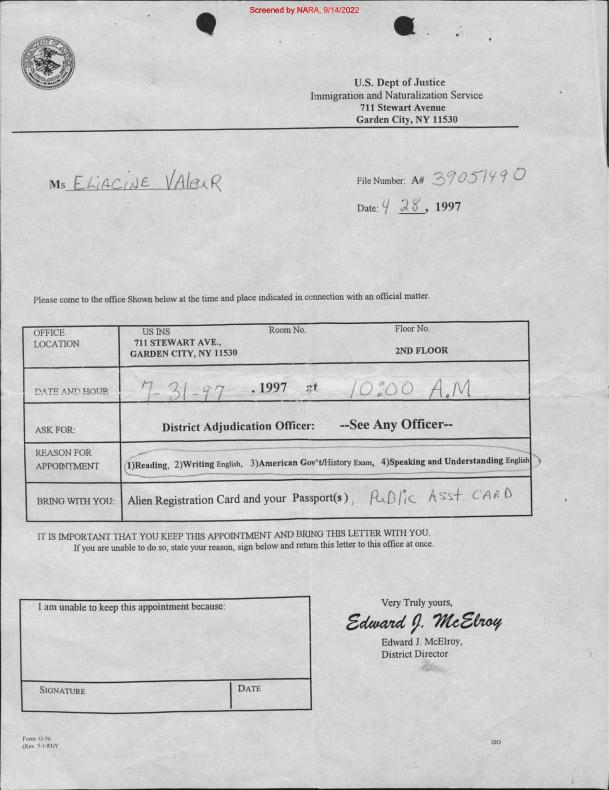 Screened by NARA, 9/14/2022
U.S. Dept of Justice
Immigration and Naturalization Service
711 Stewart Avenue
Garden City, NY 11530
Ms ELIACINE VALEUR
File Number: A# 39051490
Date: 4 28, 1997
Please come to the office Shown below at the time and place indicated in connection with an official matter.
OFFICE LOCATION
US INS
711 STEWART AVE.,
GARDEN CITY, NY 11530
Room No.
Floor No.
2ND FLOOR
DATE AND HOUR 7-31-97 . 1997 at 10:00 A.M
ASK FOR: District Adjudication Officer: --See Any Officer--
REASON FOR APPOINTMENT
1)Reading, 2)Writing English, 3)American Gov't/History Exam, 4)Speaking and Understanding English
BRING WITH YOU: Alien Registration Card and your Passport(s), PUBlic Asst. CARD
IT IS IMPORTANT THAT YOU KEEP THIS APPOINTMENT AND BRING THIS LETTER WITH YOU.
If you are unable to do so, state your reason, sign below and return this letter to this office at once.
I am unable to keep this appointment because:
SIGNATURE
DATE
Very Truly yours,
Edward J. McElroy
Edward J. McElroy,
District Director
Form G-56
(Rev. 5-1-83)Y
ISO